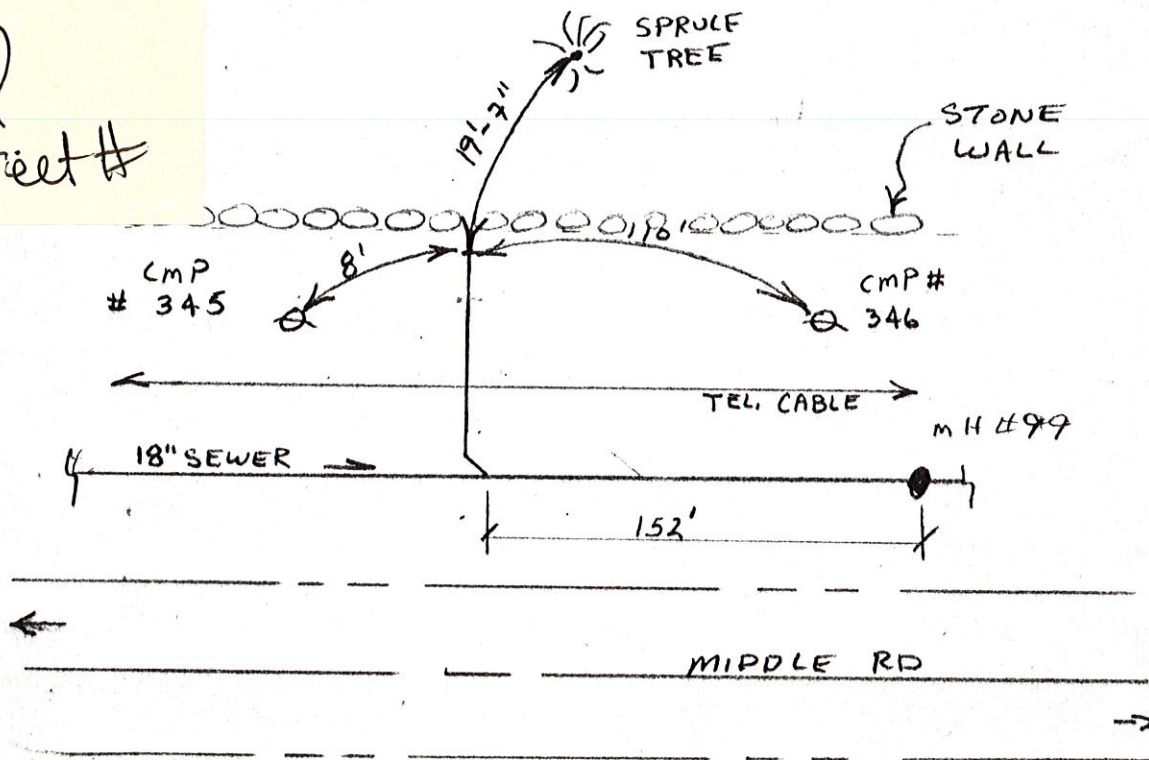 SPRUCE
TREE
19'-7"
STONE
WALL
eet #
8'
CMP
# 345
CMP #
346
TEL. CABLE
MH #99
18" SEWER
152'
MIDDLE RD